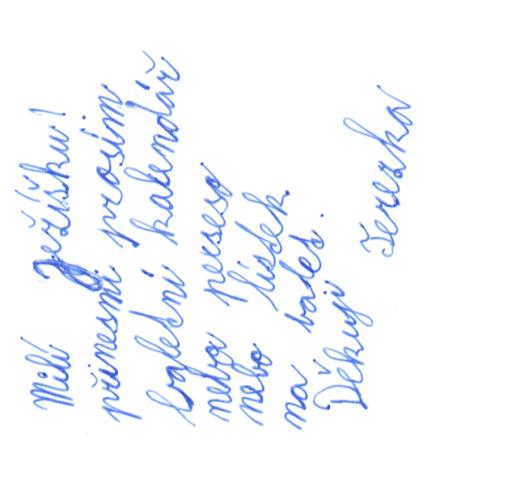 Milí Ježíšku!
přinesmi prosím
 kalendář
nebo pexeso
nebo lísdek
na balet.
Děkuji Terezka